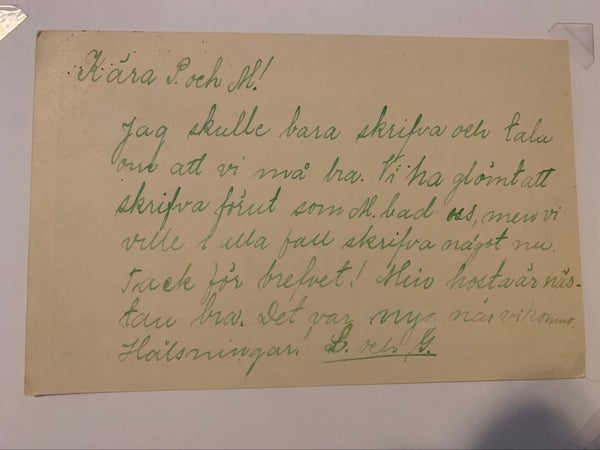 Kära P. och M.!
Jag skulle bara skrifva och tala
om att vi må bra. Vi ha glömt att
skrifva förut som M. bad oss, men vi
ville i alla fall skrifva något nu.
Tack för brefvet! Min hosta är näs-
tan bra. Det var när vi komma.
Hälsningar! L. och G.